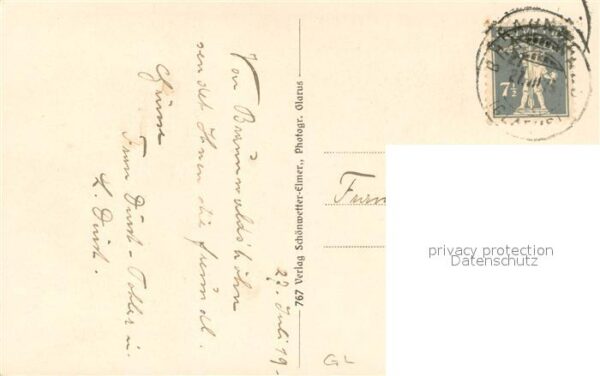 Von Braunwalds höhn
sendet Ihnen die freundl.
Grüsse
Frau Dürst - Tobler u.
K. Dürst.
27. Juli 19
767 Verlag Schönwetter-Elmer., Photogr. Glarus
7½
BRAUNWALD
(GLARUS)
privacy protection
Datenschutz